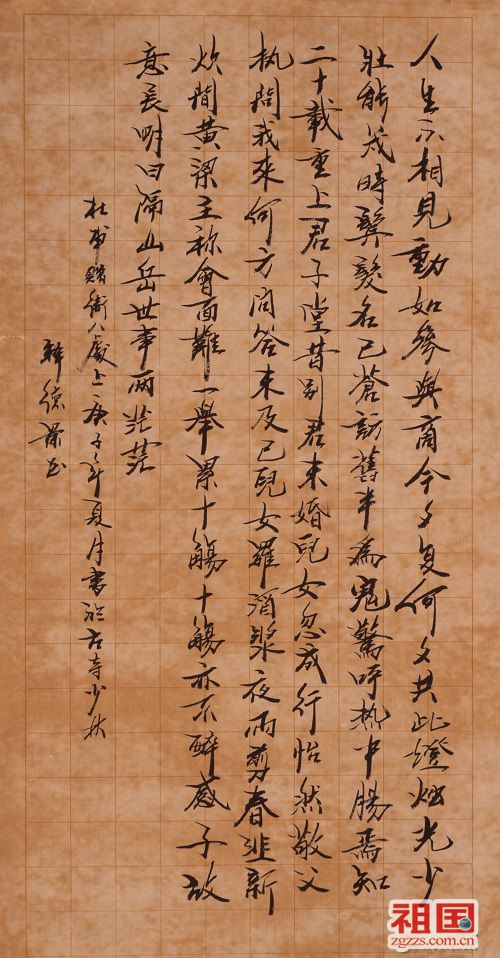 人生不相見動如參與商今夕复何夕共此燈烛光少
壯能幾時鬢髮各已蒼訪舊半為鬼驚呼热中腸焉知
二十載重上君子堂昔別君未婚兒女忽成行怡然敬父
执問我來何方問答未及已兒女羅酒漿夜雨剪春韭新
炊間黃梁主称會面難一舉累十觴十觴亦不醉感子故
意長明日隔山岳世事兩茫茫
杜甫贈衛八處士庚子年夏月書於古寺少林
韓德
祖国
zgzzs.com.cn